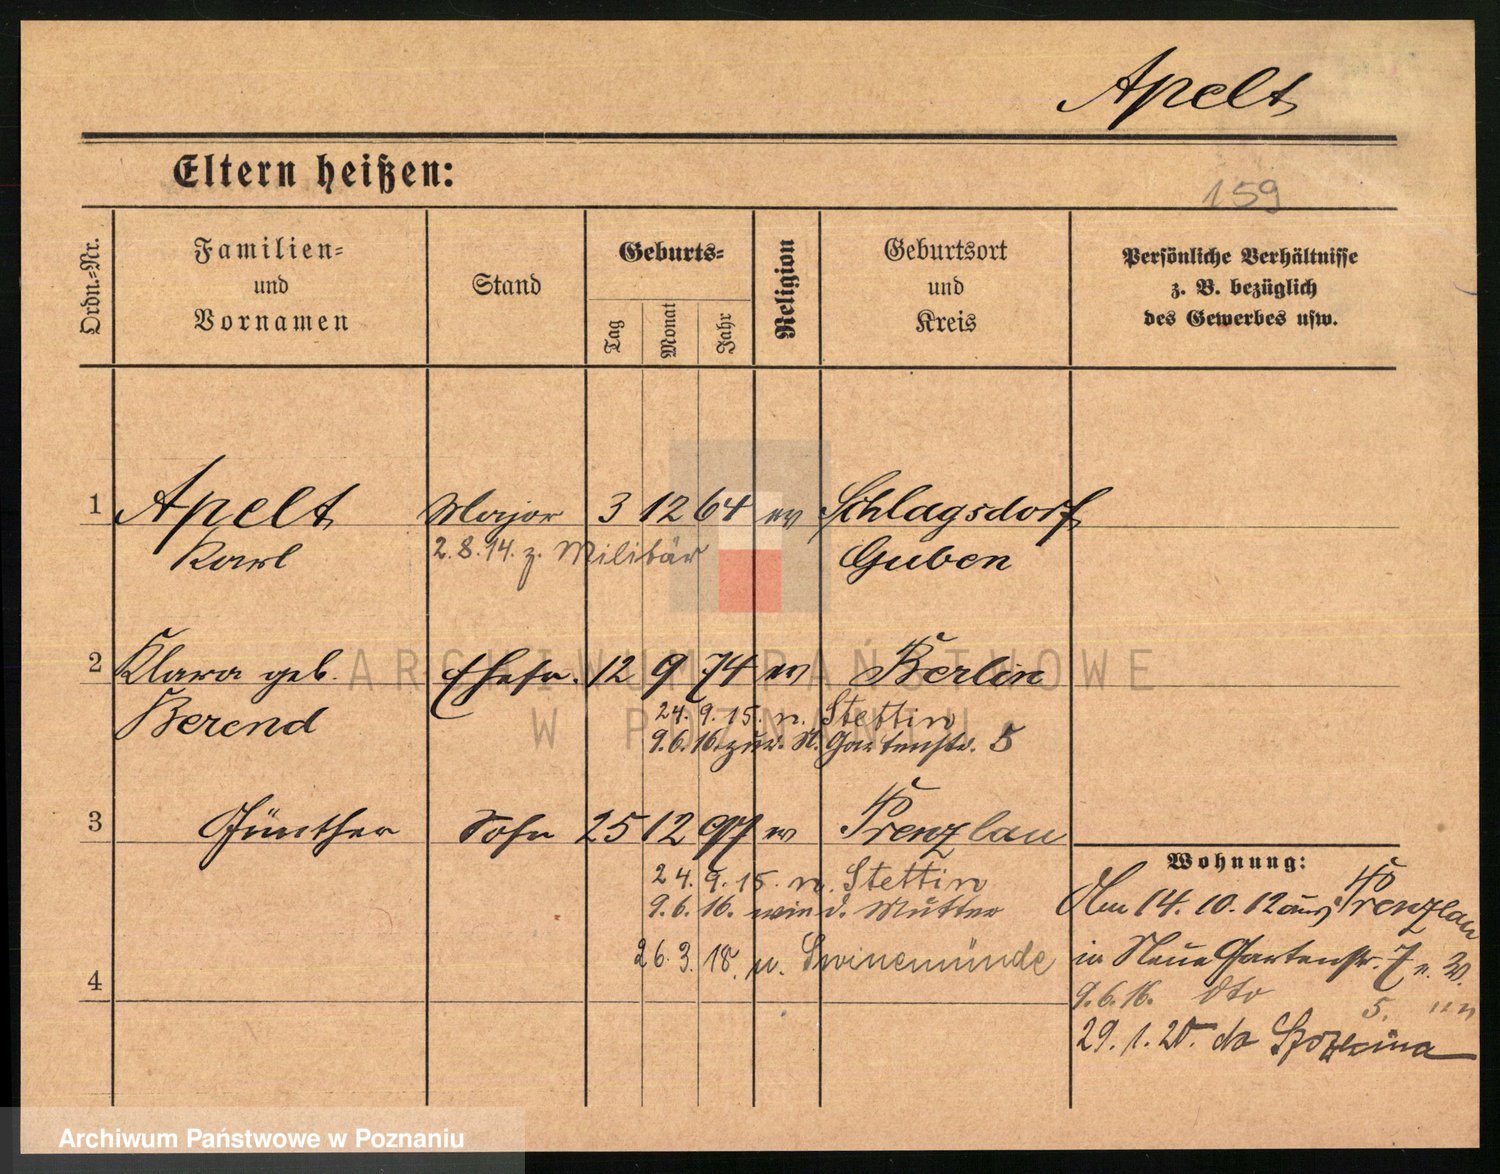 Apelt
Eltern heißen:
159
Ordn.-Nr.
Familien-
und
Vornamen
Stand
Geburts-
Tag
Monat
Jahr
Religion
Geburtsort
und
Kreis
Persönliche Verhältnisse
z. B. bezüglich
des Gewerbes usw.
1 Apelt Major 3 12 64 ev Schlagsdorf
Karl 2.8.14. z. Militär Guben
2 Klara geb. Ehefr. 12 9 74 ev Berlin
Berend 24. 9. 15. n. Stettin
9.6.16. zur. N. Gartenstr. 5
3 Günther Sohn 25 12 97 ev Prenzlau
24. 9. 15. n. Stettin
9.6.16. wie d. Mutter
26.3.18. n. Swinemünde
4
Wohnung:
Am 14. 10. 12 aus Prenzlau
in Neue Gartenstr. 7 b. W.
9.6.16. dto 5. " "
29.1.20. do
ARCHIWUM PAŃSTWOWE
W POZNANIU
Archiwum Państwowe w Poznaniu